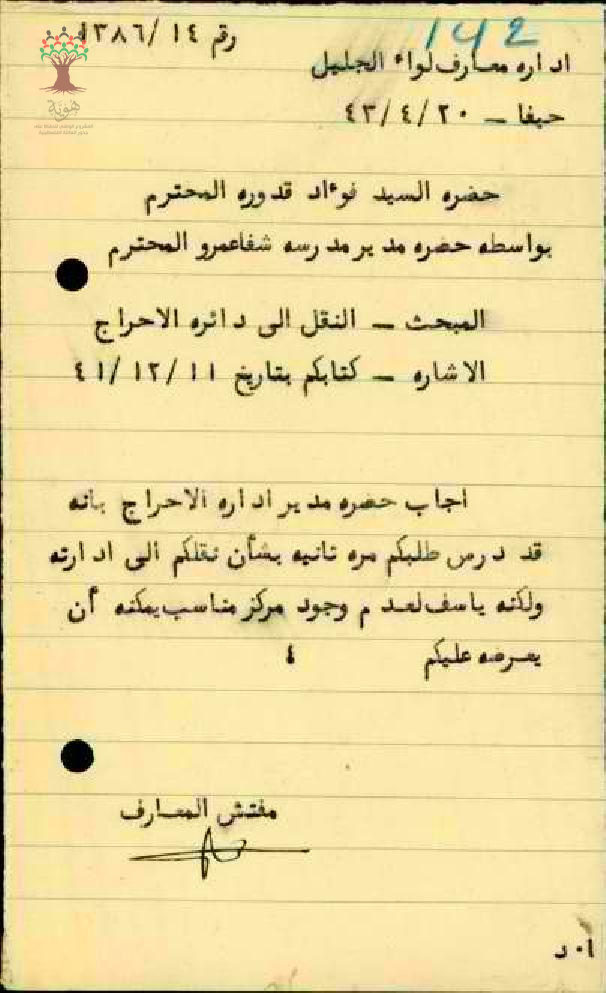 142
رقم ١٣٨٦/١٤
اداره معارف لواء الجليل
حيفا — ٤٣/٤/٢٠
حضره السيد فوءاد قدوره المحترم
بواسطه حضره مدير مدرسه شفاعمرو المحترم
المبحث — النقل الى دائره الاحراج
الاشاره — كتابكم بتاريخ ٤١/١٢/١١
اجاب حضره مدير اداره الاحراج بانه
قد درس طلبكم مره ثانيه بشأن نقلكم الى ادارته
ولكنه ياسف لعدم وجود مركز مناسب يمكنه أن
يعرضه عليكم ٤
مفتش المعارف
هوية